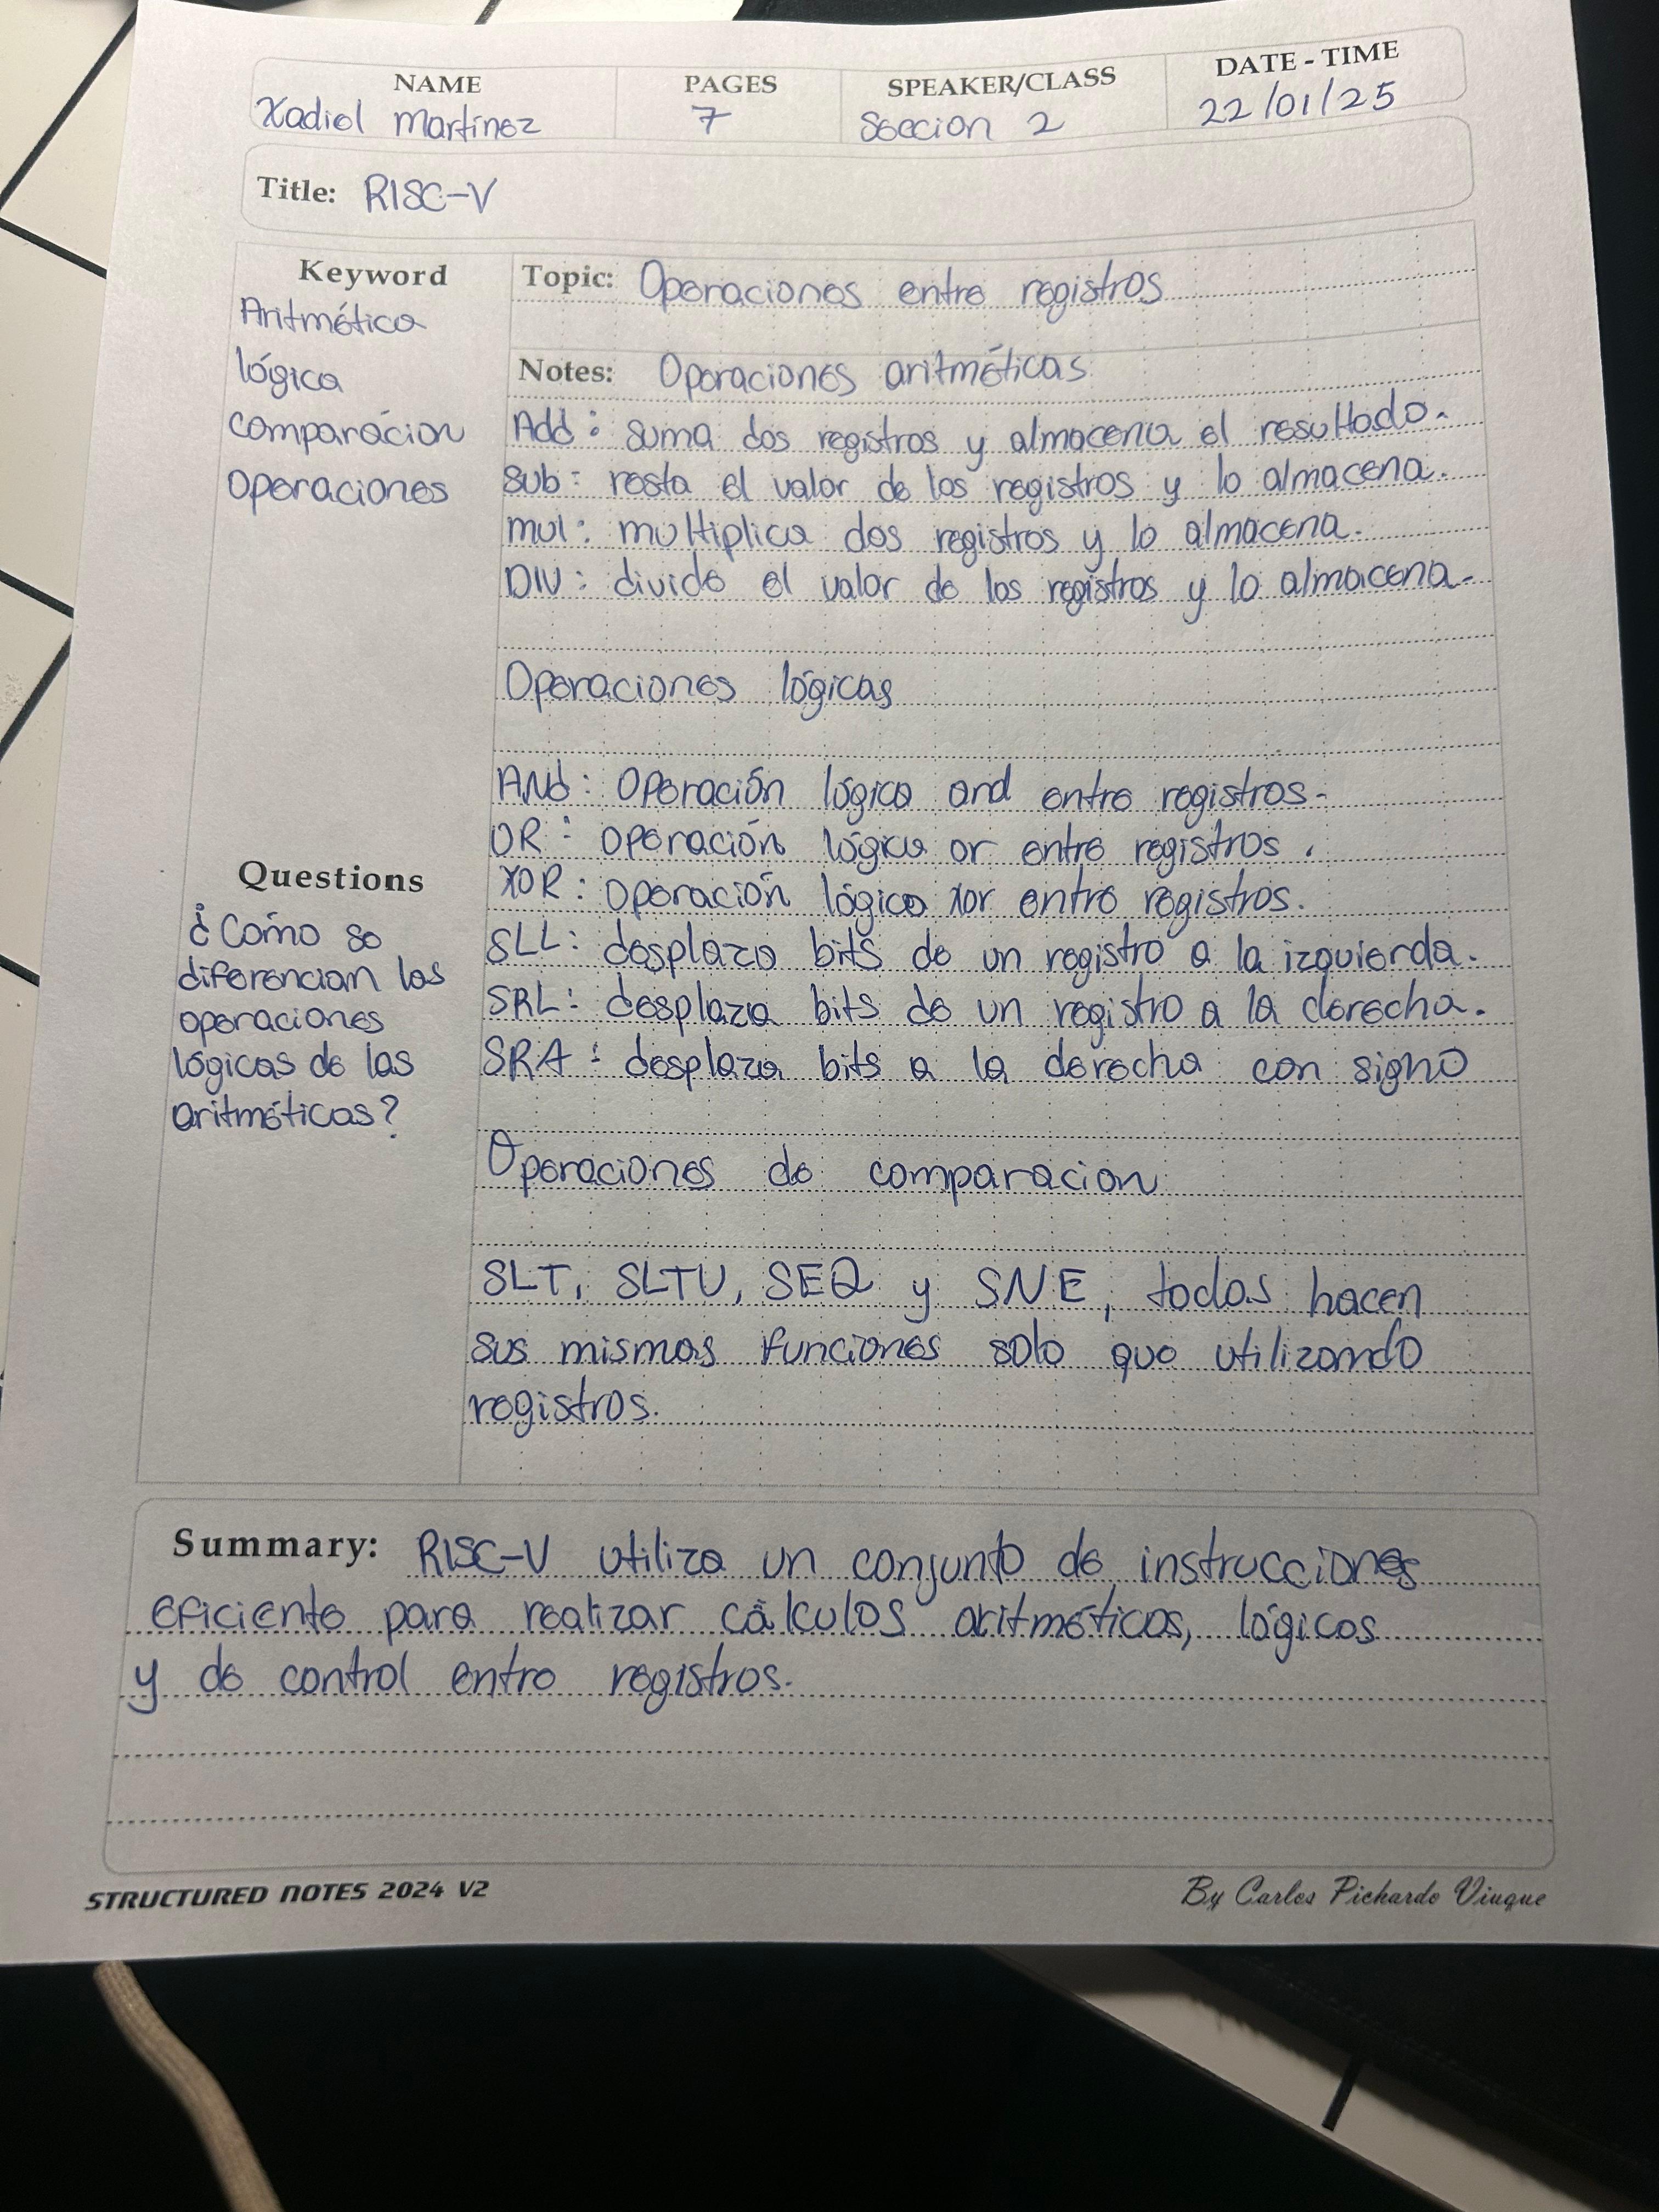 NAME PAGES SPEAKER/CLASS DATE - TIME
Xadiel Martinez 7 Seccion 2 22/01/25
Title: RISC-V
Keyword
Aritmética
lógica
comparácion
Operaciones
Topic: Operaciones entre registros
Notes: Operaciones aritméticas
Add: suma dos registros y almacena el resultado.
Sub: resta el valor de los registros y lo almacena.
mul: multiplica dos registros y lo almacena.
DIV: divide el valor de los registros y lo almacena.
Operaciones lógicas
AND: Operación lógica and entre registros.
OR: operación lógica or entre registros.
XOR: operación lógica xor entre registros.
SLL: desplaza bits de un registro a la izquierda.
SRL: desplaza bits de un registro a la derecha.
SRA: desplaza bits a la derecha con signo
Operaciones de comparacion
SLT, SLTU, SEQ y SNE, todas hacen
sus mismas funciones solo que utilizando
registros.
Questions
¿Cómo se
diferencian las
operaciones
lógicas de las
aritméticas?
Summary: RISC-V utiliza un conjunto de instrucciones
eficiente para realizar cálculos aritméticos, lógicos
y de control entre registros.
STRUCTURED NOTES 2024 V2 By Carlos Pichardo Viuque